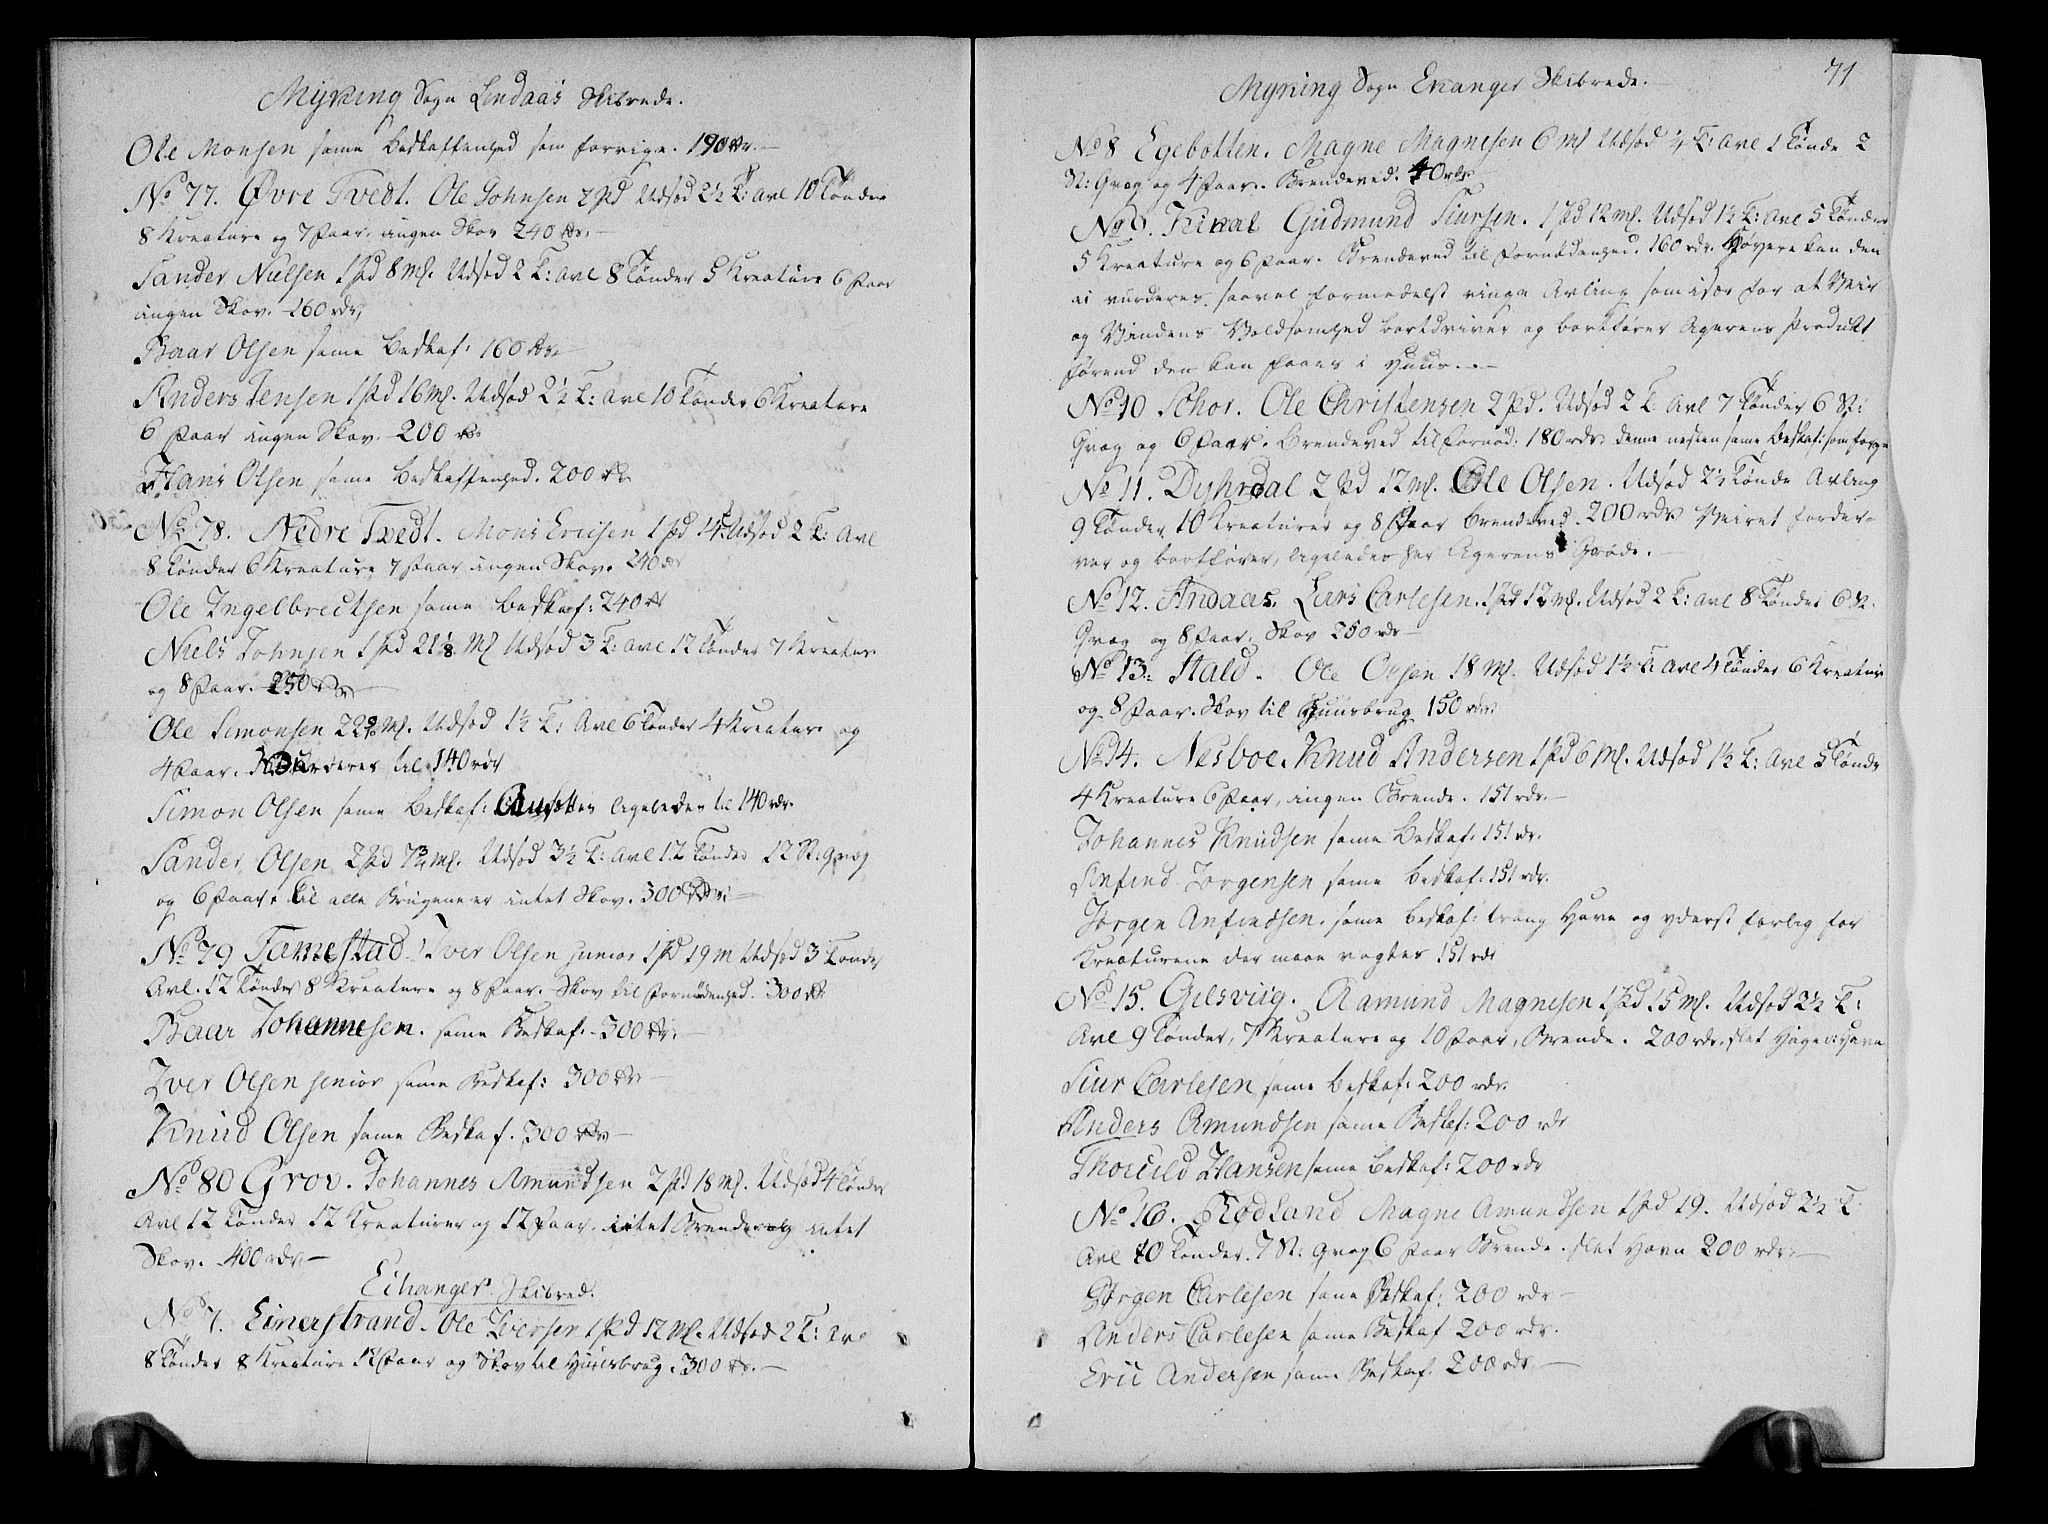 Myking Sogn Lindaas Skibrede.
Ole Monsen same Beskaffenhed som forrige. 190 rdr.
No 77. Øvre Tvedt. Ole Johnsen 2 Pd Udsæd 2½ T: Avl 10 Tønder
8 Kreature og 7 Faar, ingen Skov 240 rdr.
Sander Nielsen 1 Pd 8 Ml. Udsæd 2 T: Avl 8 Tønder 5 Kreature 6 Faar
ingen Skov. 160 rdr,
Baar Olsen same Beskaf: 160 rdr
Anders Jensen 1 Pd 16 Ml. Udsæd 2½ T: Avl 10 Tønder 6 Kreature
6 Faar ingen Skov. 200 rdr
Hans Olsen same Beskaffenhed. 200 rdr
No 78. Nedre Tvedt. Mons Ericsen 1 Pd Udsæd 2 T: Avl
8 Tønder 6 Kreature 7 Faar ingen Skov. 240 rdr
Ole Ingelbrectsen same Beskaf: 240 rdr
Niels Johnsen 1 Pd 21⅛ Ml Udsæd 3 T: Avl 12 Tønder 7 Kreatur
og 8 Faar. 250 rdr
Ole Simonsen 22 Ml. Udsæd 1½ T: Avl 6 Tønder 4 Kreature og
4 Faar. til 140 rdr
Simon Olsen same Beskaf: Ansættes ligeledes til 140 rdr.
Sander Olsen 2 Pd 7¾ Ml. Udsæd 3½ T: Avl 12 Tønder 12 St: Qvæg
og 6 Faar. til alle Brugene er intet Skov. 300 rdr.
No 79 Tamestad. Iver Olsen junior 1 Pd 19 m Udsæd 3 Tønder
Avl. 12 Tønder 8 Kreature og 8 Faar. Skov til Fornødenhed. 300 rdr
Baar Johannesen. same Beskaf. 300 rdr.
Iver Olsen senior same Beskaf: 300 rdr
Knud Olsen same Beskaf. 300 rdr
No 80 Grov. Johannes Amundsen 2 Pd 18 Ml. Udsæd 4 Tønder
Avl 12 Tønder 12 Kreaturer og 12 Faar. intet Brende og intet
Skov. 400 rdr
Eihanger Skibred.
No 7. Einerstrand. Ole Iversen 1 Pd 12 Ml. Udsæd 2 T: Avl
8 Tønder 8 Kreature 12 Faar og Skov til Huusbrug. 300 rdr.
71
Myking Sogn Eixanger Skibrede.
No 8 Egebotten. Magne Magnesen 6 Ml Udsæd ¼ T: Avl 1 Tønde 2
St: Qvæg og 4 Faar. Brendeved. 40 rdr
No 9. Gudmund Siursen. 1 Pd 12 Ml. Udsæd 1½ T: Avl 5 Tønder
5 Kreature og 6 Faar. Brendeved til Fornødenhed. 160 rdr. Høyere kan den
ei vurderes, saavel formedelst ringe Avling som især for at Veir
og Vindens Voldsomhed bortdriver og bortfører Agerens Produkt
førend den kan faaes i Huus.
No 10 Schor. Ole Christensen 2 Pd. Udsæd 2 T. Avl 7 Tønder 6 St:
Qvæg og 6 Faar. Brendeved til Fornød: 180 rdr denne nesten same Beskaf: som forige
No 11. Dyhrdal 2 Pd 12 Ml. Ole Olsen. Udsæd 2½ Tønde Avling
9 Tønder 10 Kreaturer og 8 Faar Brendeved. 200 rdr Veiret forder-
ver og bortfører, ligeledes her Agerens Grøde.
No 12. Andaas. Lars Carlesen. 1 Pd 12 Ml. Udsæd 2 T: Avl 8 Tønder 6 St.
Qvæg og 8 Faar. Skov 250 rdr
No 13. Stald. Ole Olsen 18 Ml. Udsæd 1½ T: Avl 4 Tønder 6 Kreature
og 8 Faar. Skov til Huusbrug 150 rdr.
No 14. Nesboe. Knud Andersen 1 Pd 6 Ml. Udsæd 1½ T: Avl 5 Tønde
4 Kreature 6 Faar, ingen Brende. 151 rdr.
Johannes Knudsen same Beskaf. 151 rdr.
Anfind Jørgensen same Beskaf: 151 rdr.
Jørgen Anfindsen. same Beskaf: trang Havn og yderst farlig for
Kreaturene der maae vogtes 151 rdr
No 15. Gilsviig. Aamund Magnesen 1 Pd 15 Ml. Udsæd 2½ T:
Avl 9 Tønder, 7 Kreature og 10 Faar, Brende. 200 rdr. slet
Siur Carlesen same Beskaf: 200 rdr
Anders Amundsen same Beskaf: 200 rdr
Thorcild Hansen same Beskaf: 200 rdr
No 16. Rødland Magne Amundsen 1 Pd 19. Udsæd 2½ T:
Avl 10 Tønder. 7 St: Qvæg 6 Faar Brende. slet Havn 200 rdr.
Jørgen Carlesen same Beskaf: 200 rdr
Anders Carlesen same Beskaf 200 rdr.
Eric Andersen same Beskaf. 200 rdr.